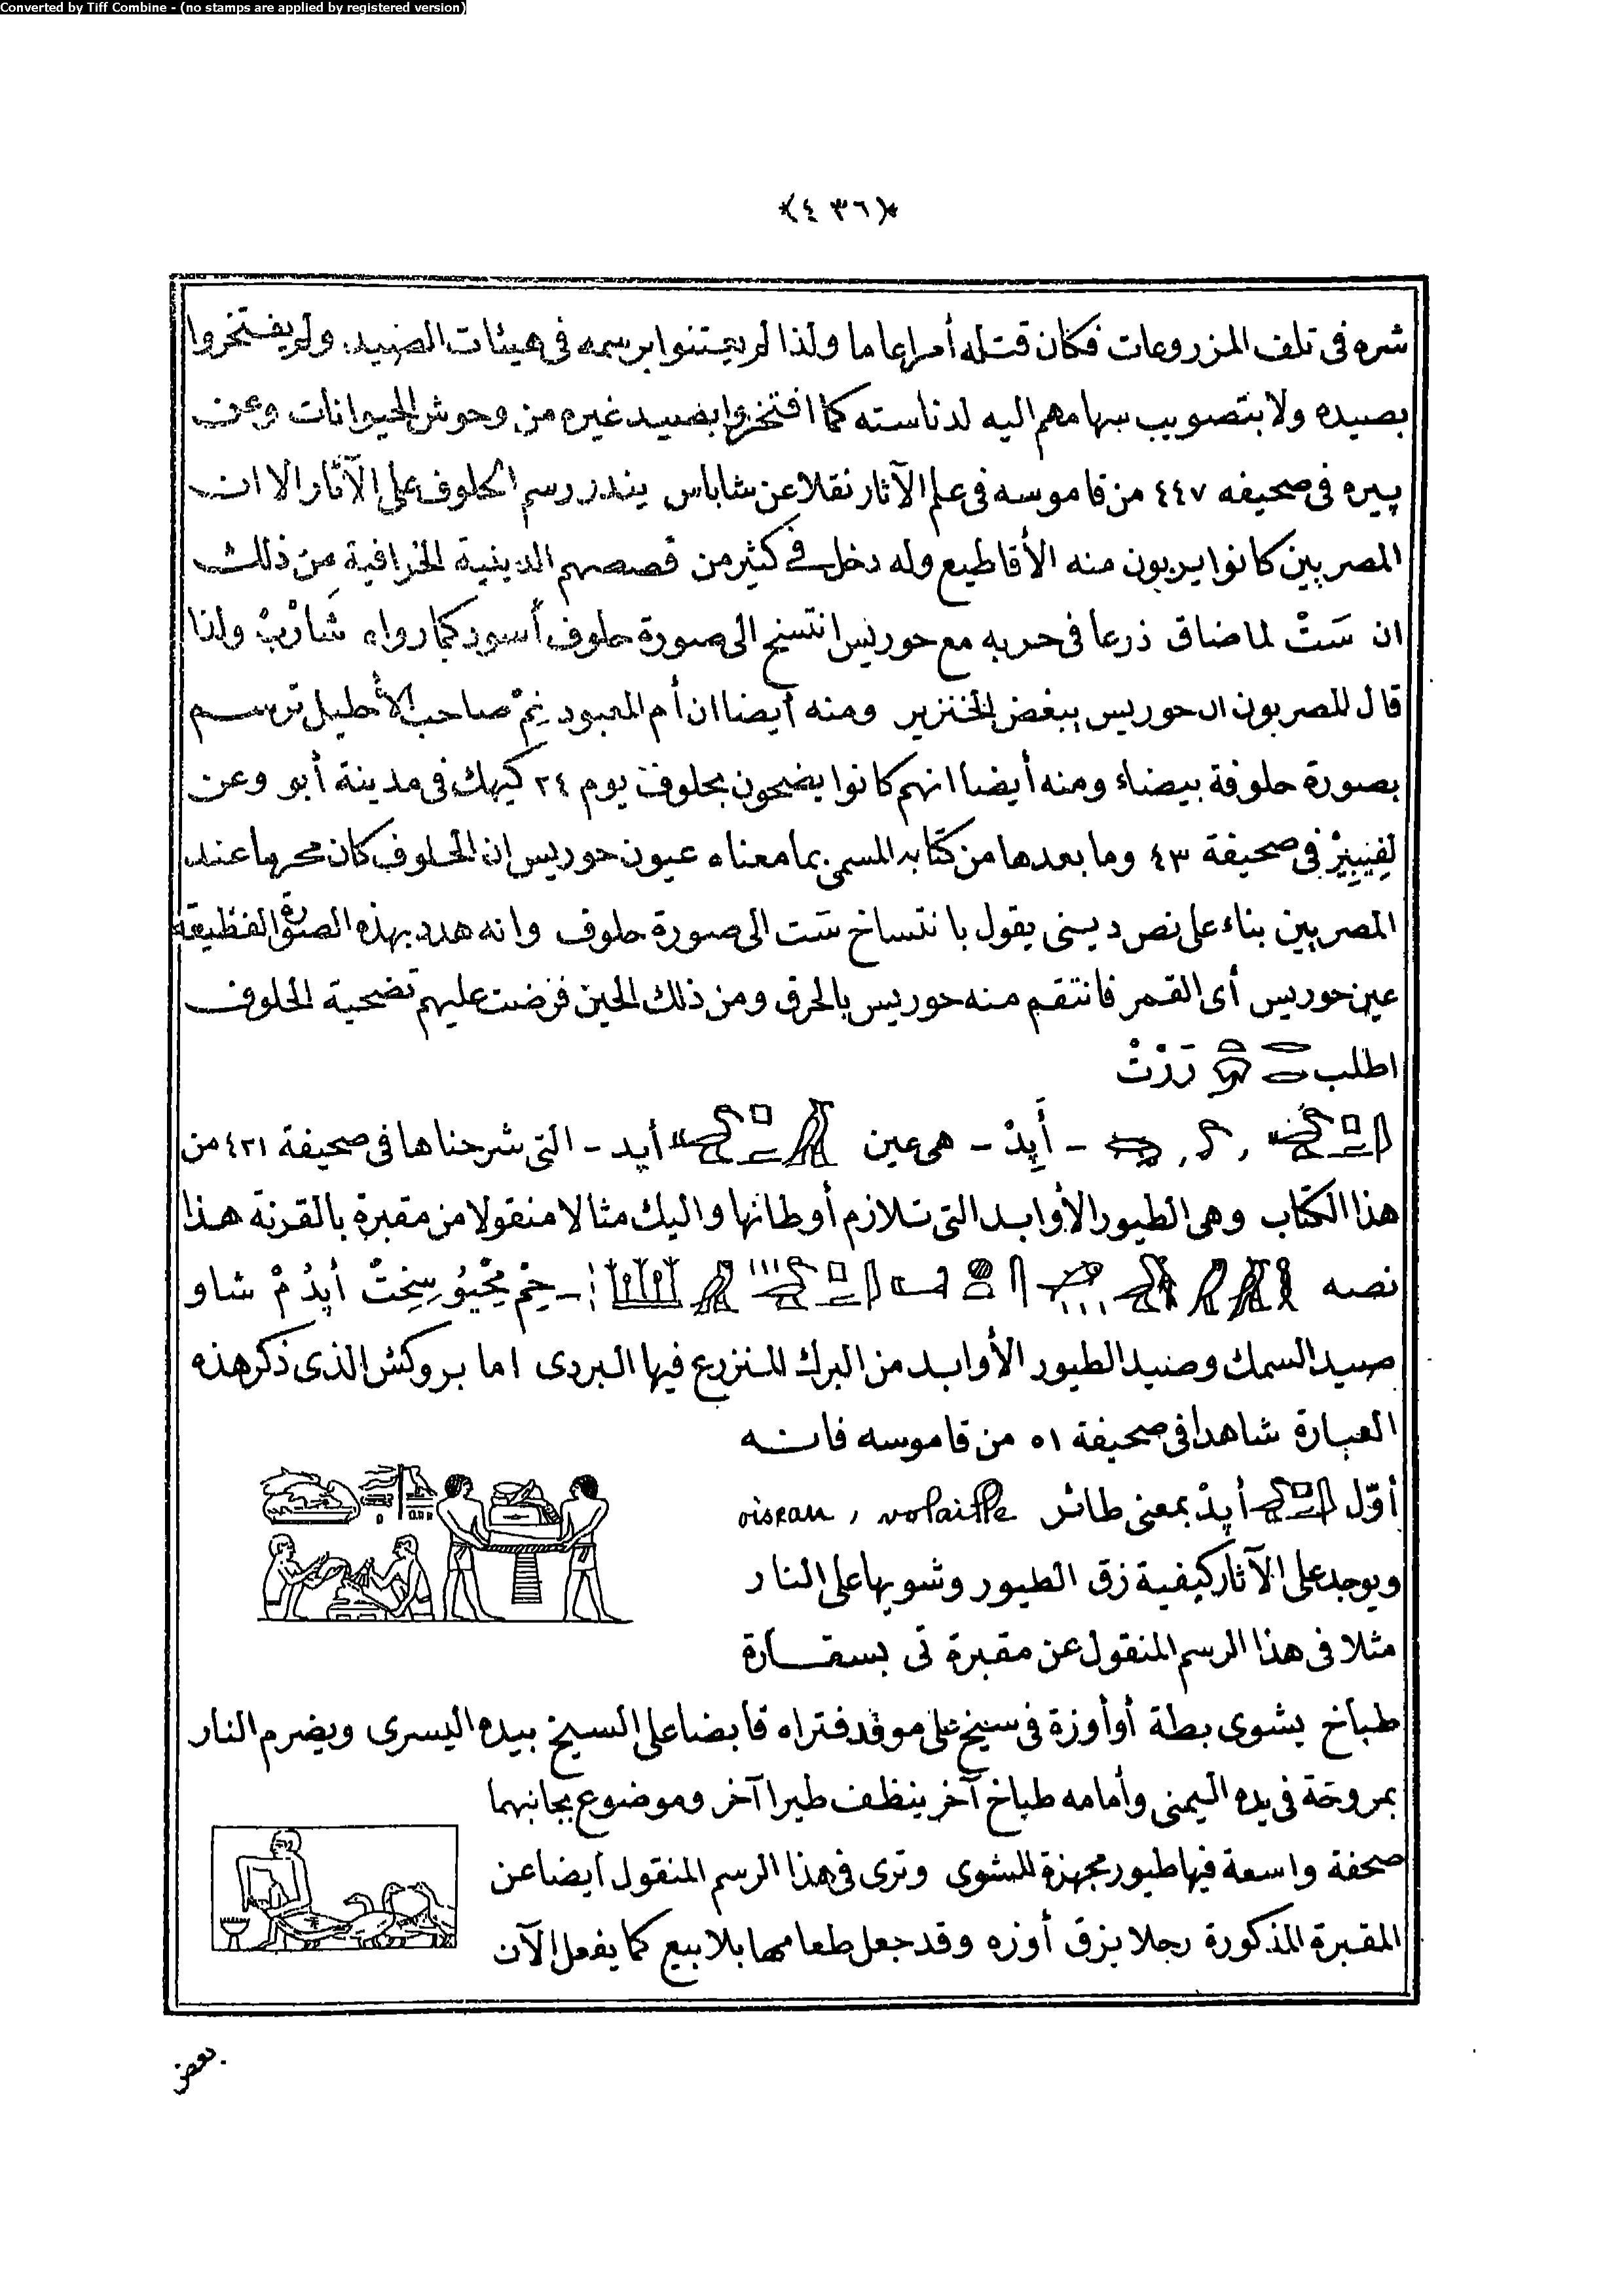 Converted by Tiff Combine - (no stamps are applied by registered version)
*(٤٣٦)*
شره فى تلف المزروعات فكان قتله أمرا عاما ولذا لم يعتنوا برسمه فى هيئات الصيد ولم يفتخروا
بصيده ولا بتصويب سهامهم اليه لدناسته كما افتخروا بصيد غيره من وحوش الحيوانات وعن
پيره فى صحيفه ٤٤٧ من قاموسه فى علم الآثار نقلا عن شاباس يندر رسم الحلوف على الآثار الا ان
المصريين كانوا يربون منه الأقاطيع وله دخل فى كثير من قصصهم الدينية الخرافية من ذلك
ان سَتْ لما ضاق ذرعا فى حربه مع حوريس انتسخ الى صورة حلوف أسود كما رواه ولذا
قال المصريون ان حوريس يبغض الخنزير ومنه أيضا ان أم المعبود صاحب الأحليل ترسم
بصورة حلوفة بيضاء ومنه أيضا انهم كانوا يضحون بحلوف يوم ٢٤ كيهك فى مدينة أبو وعن
لِفِيبِيرْ فى صحيفة ٤٣ وما بعدها من كتابه المسمى بما معناه عيون حوريس ان الحلوف كان مكرها عند
المصريين بناء على نص دينى يقول بانتساخ سَت الى صورة حلوف وانه هدد بهذه الصورة الفظيعة
عين حوريس أى القمر فانتقم منه حوريس بالحرق ومن ذلك الحين فرضت عليهم تضحية الحلوف
اطلب رَرْتْ
- أَپِدْ - هى عين أپد - التى شرحناها فى صحيفة ٤٢١ من
هذا الكتاب وهى الطيور الأوابد التى تلازم أوطانها واليك مثالا منقولا من مقبرة بالقرنة هذا
نصه - سِخِتْ أپِدُ مْ شاو
صيد السمك وصيد الطيور الأوابد من البرك المنزرع فيها البردى اما بروكش الذى ذكر هذه
العبارة شاهدا فى صحيفة ٥١ من قاموسه فانه
أوّل أپِدْ بمعنى طائر oiseau, volaille
ويوجد على الآثار كيفية زق الطيور وشويها على النار
مثلا فى هذا الرسم المنقول عن مقبرة تى بسقارة
طباخ يشوى بطة أو أوزة فى سيخ على موقد فتراه قابضا على السيخ بيده اليسرى ويضرم النار
بمروحة فى يده اليمنى وأمامه طباخ آخر ينظف طيرا آخر وموضوع بجانبهما
صحفة واسعة فيها طيور مجهزة للشوى وترى فى هذا الرسم المنقول أيضا عن
المقبرة المذكورة رجلا يزق أوزه وقد جعل طعامها بلابيع كما يفعل الآن
بعض